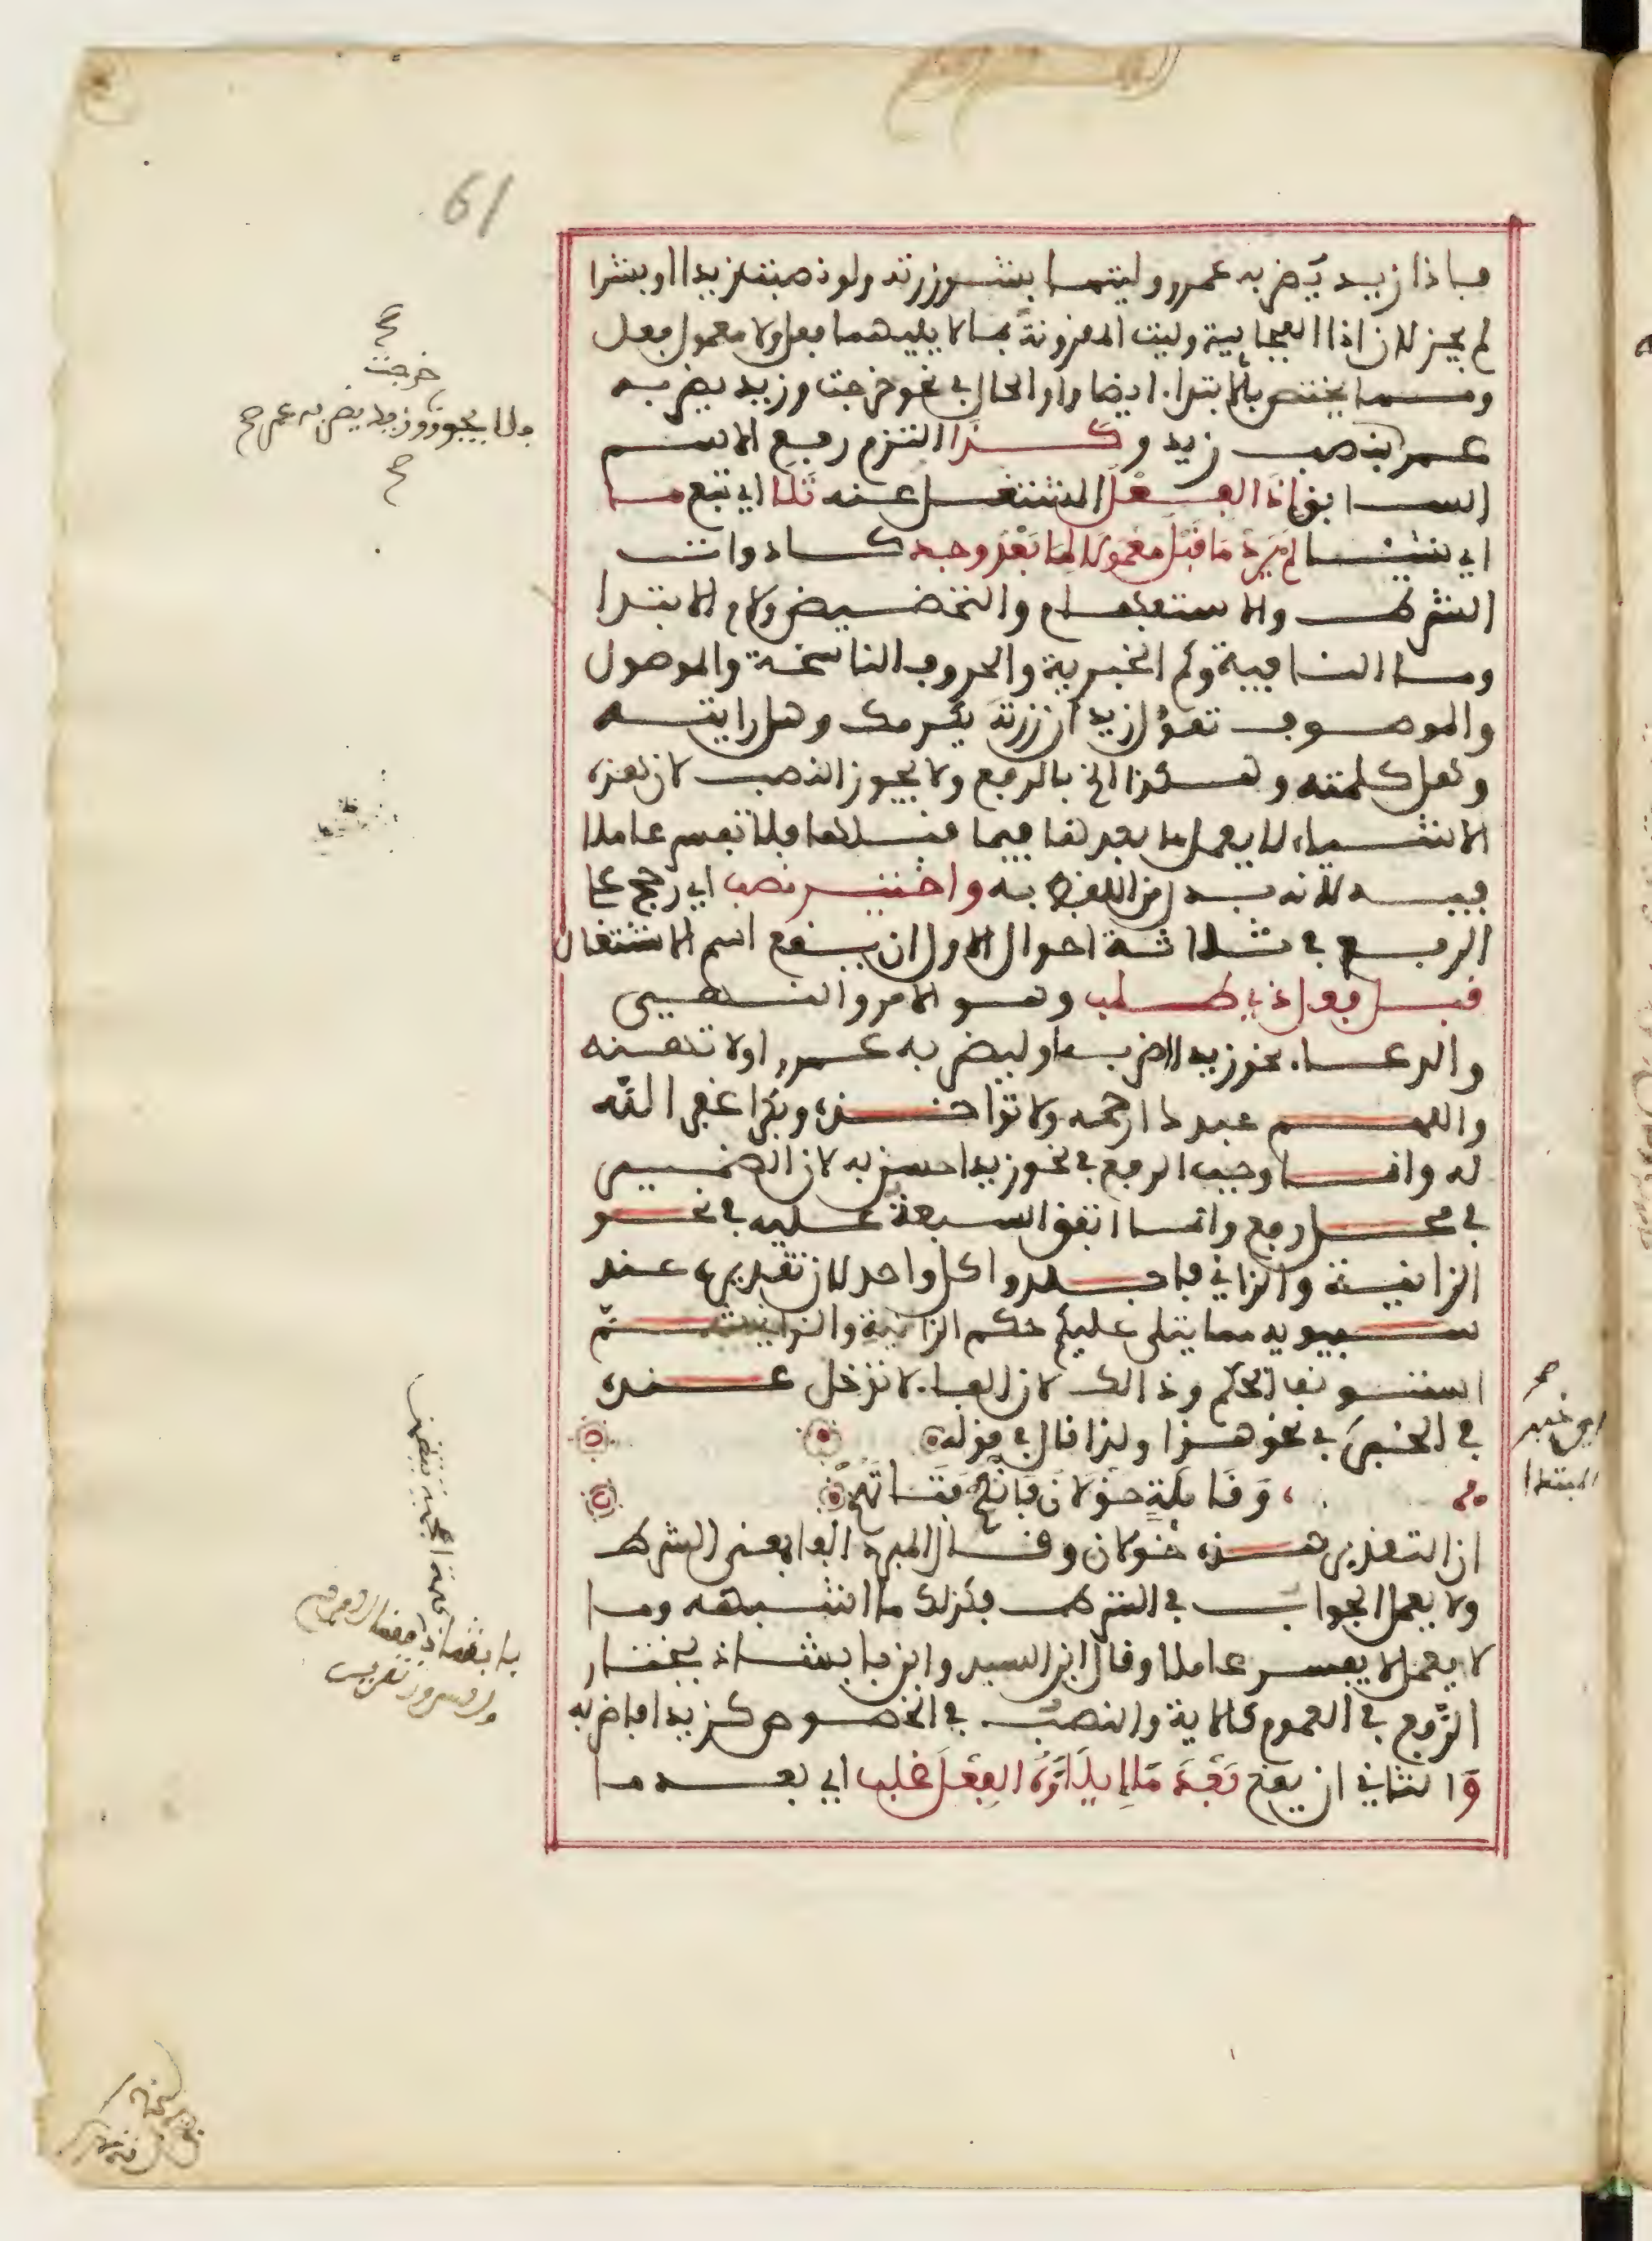 61
فإذا زيد يضربه عمرو وليتما بشر زرته ولو نصبت زيدا او بشرا
لم يجز لان اذا الفجايية وليت المقرونة بما لا يليهما فعل ولا معمول فعل
ومما يختص بالابتداء ايضا واو الحال في نحو خرجت وزيد يضربه
عمرو بنصب زيد وكذا التزم رفع الاسم
السابق اذا الفعل المشتغل عنه تلا اي تبع ما
اي شيئا لم يرد ما قبل معمولا لما بعد وجد كادوات
الشرط والاستفهام والتحضيض ولام الابتدا
وما النافية وكم الخبرية والحروف الناسخة والموصول
والموصوف تقول زيد ان زرته يكرمك وهل رايته
وهل كلمته وهكذا الخ بالرفع ولا يجوز النصب لان هذه
الاشياء لا يعمل ما بعدها فيما قبلها فلا تفسر عاملا
فيه لانه بدل من اللفظ به واختير نصب اي رجح على
الرفع في ثلاثة احوال الاول ان يقع اسم الاشتغال
قبل فعل ذي طلب وهو الامر والنهي
والدعاء نحو زيدا اضربه او ليضربه عمرو او لا تهنه
واللهم عبدك ارحمه ولا تواخذه وبكرا غفر الله
له وانما وجب الرفع في نحو زيد احسن به لان الضمير
في محل رفع وانما اتفق السبعة عليه في نحو
الزانية والزاني فاجلدوا كل واحد لان تقديره عند
سيبويه مما يتلى عليكم حكم الزانية والزاني ثم
استونف الحكم وذالك لان الفاء لا تدخل عنده
في الخبر في نحو هذا ولذا قال في قوله
وقايلة خولان فانكح فتاتهم
ان التقدير هذه خولان وقال المبرد الفا لمعنى الشرط
ولا يعمل الجواب في الشرط فكذلك ما اشبهه وما
لا يعمل لا يفسر عاملا وقال ابن السيد وابن بابشاذ يختار
الرفع في العموم كالاية والنصب في الخصوص كزيدا اضربه
والثاني ان يقع وبعد ما ايلاؤه الفعل غلب اي بعد ما
خرجت
فلا يجوز وزيدا يضربه عمرو صح
اي خبر
المبتدا